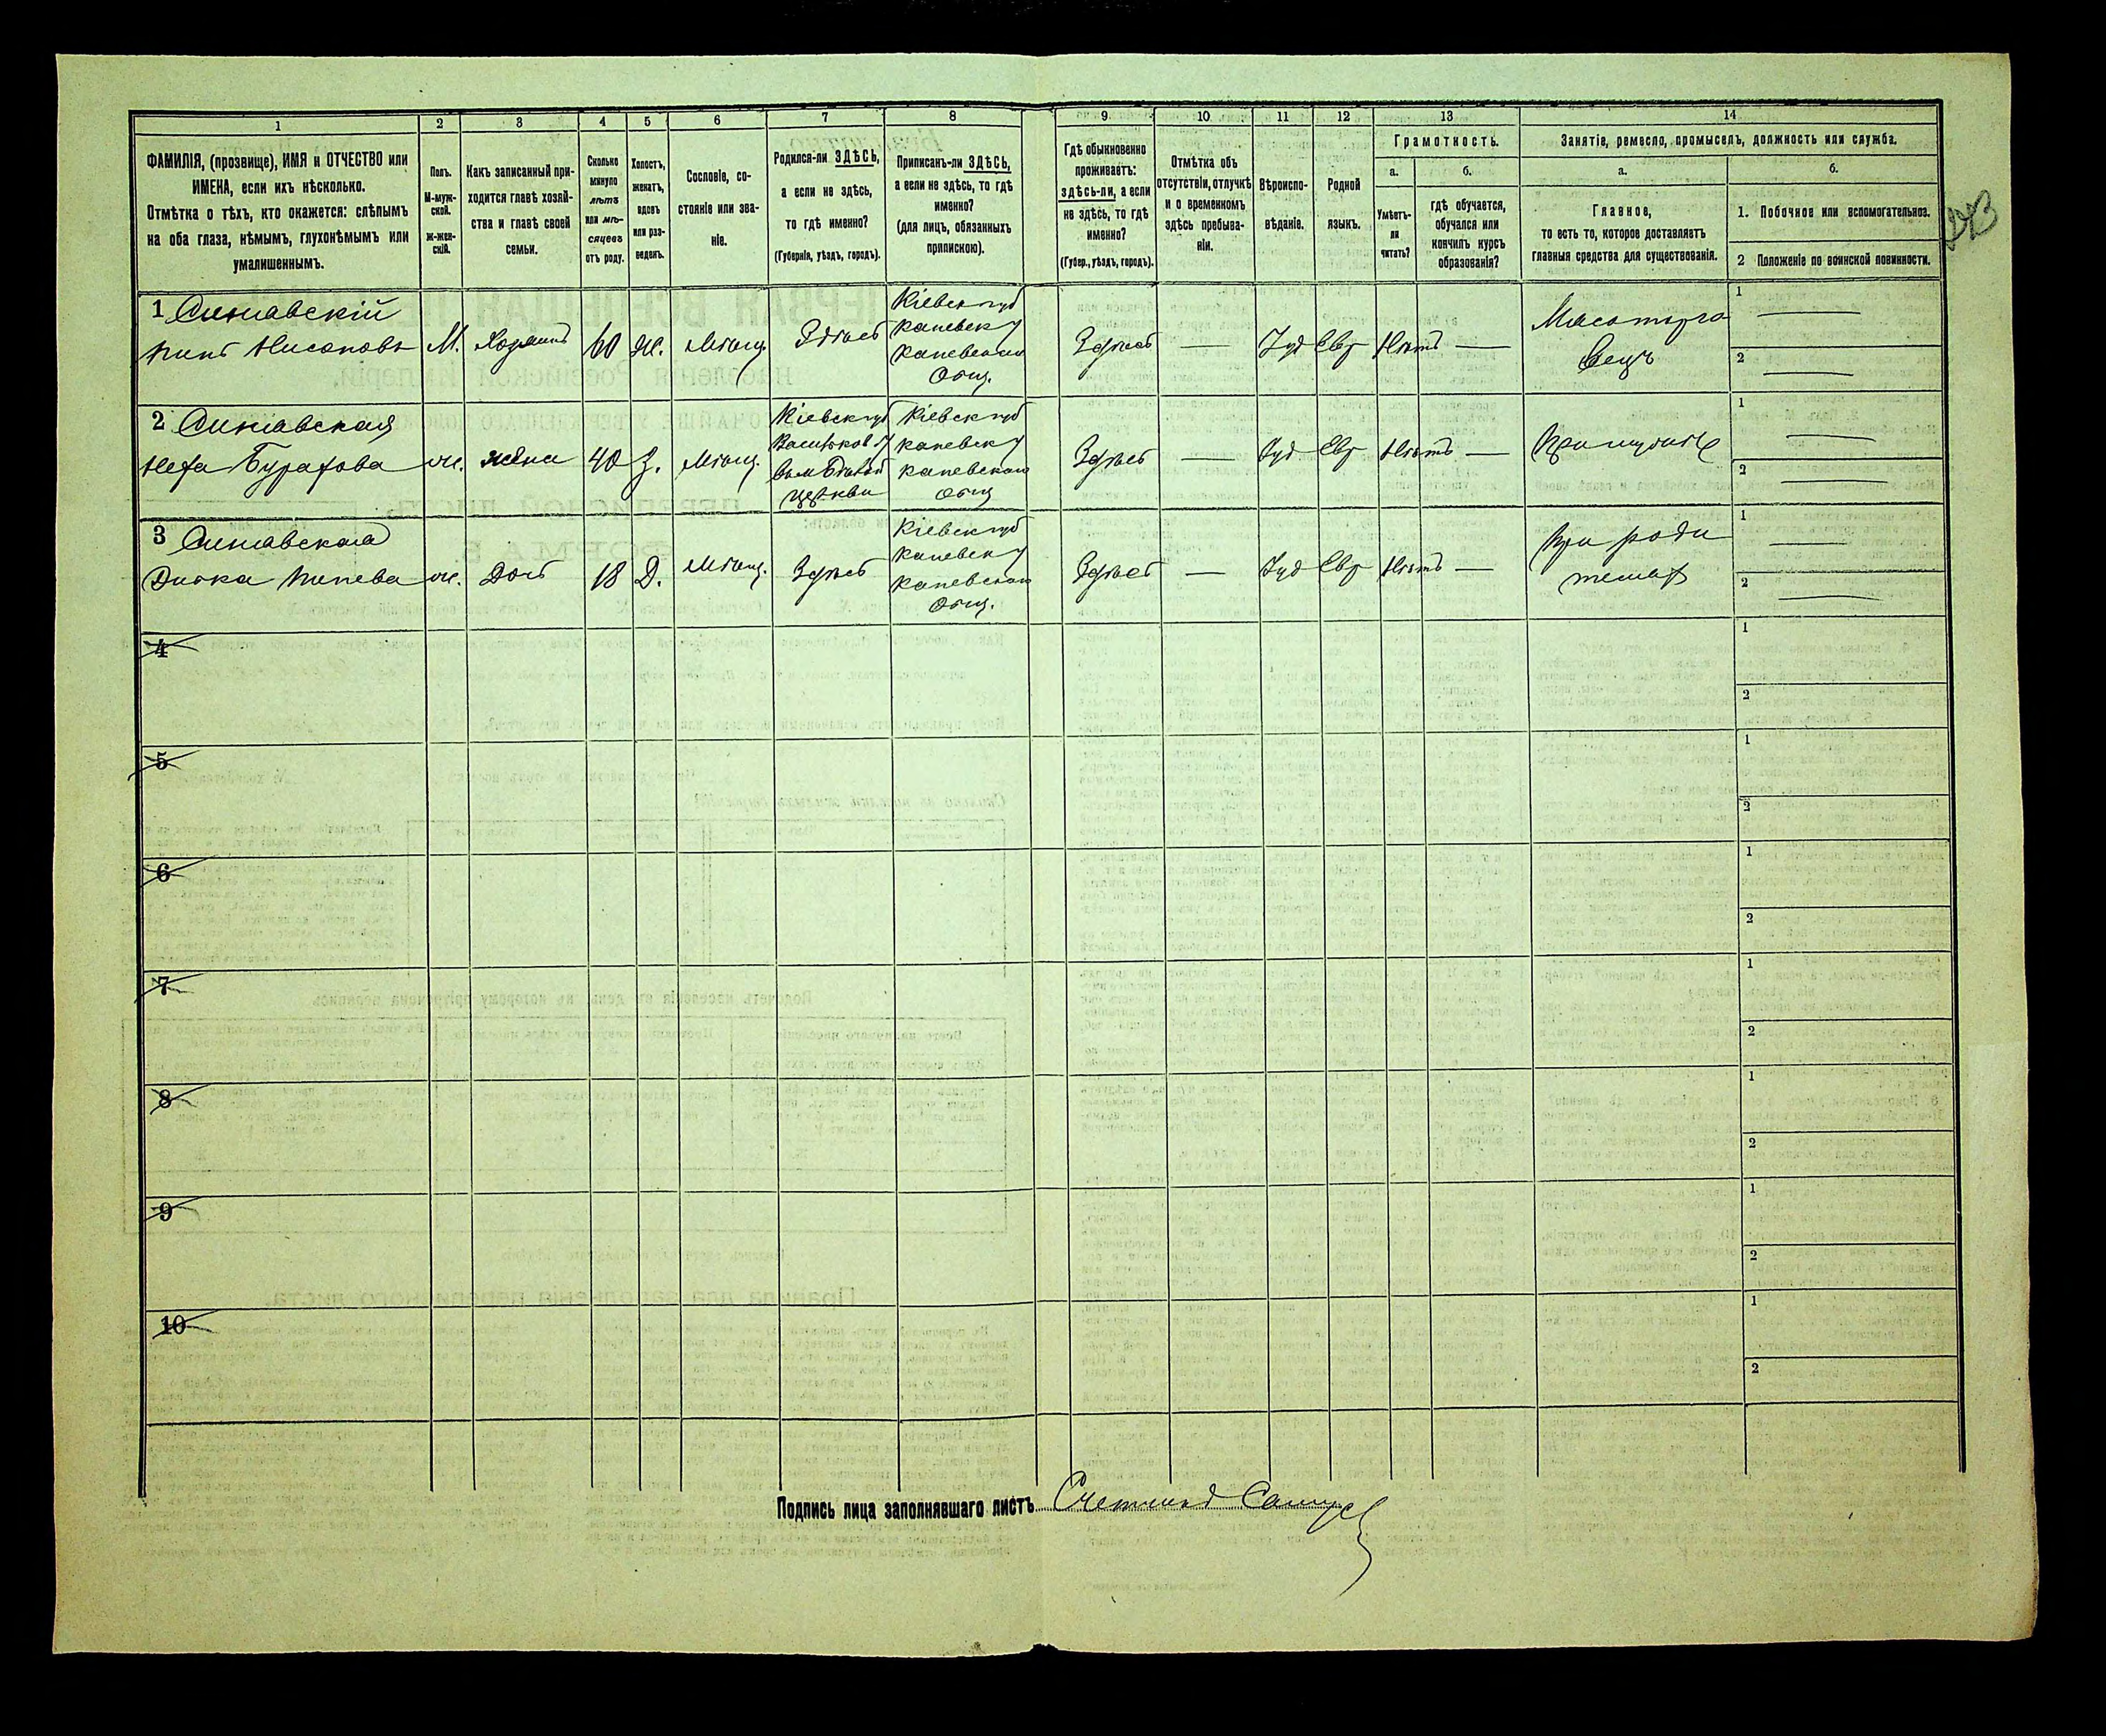 1 2 3 4 5 6 7 8 9 10 11 12 13 14
ФАМИЛІЯ, (прозвище), ИМЯ и ОТЧЕСТВО или
ИМЕНА, если ихъ нѣсколько.
Отмѣтка о тѣхъ, кто окажется: слѣпымъ
на оба глаза, нѣмымъ, глухонѣмымъ или
умалишеннымъ.
Полъ.
М-муж-
ской.
ж-жен-
скій.
Какъ записанный при-
ходится главѣ хозяй-
ства и главѣ своей
семьи.
Сколько
минуло
лѣтъ
или мѣ-
сяцевъ
отъ роду.
Холостъ,
женатъ,
вдовъ
или раз-
веденъ.
Сословіе, со-
стояніе или зва-
ніе.
Родился-ли ЗДѢСЬ,
а если не здѣсь,
то гдѣ именно?
(Губернія, уѣздъ, городъ).
Приписанъ-ли ЗДѢСЬ,
а если не здѣсь, то гдѣ
именно?
(для лицъ, обязанныхъ
припискою).
Гдѣ обыкновенно
проживаетъ:
здѣсь-ли, а если
не здѣсь, то гдѣ
именно?
(Губер., уѣздъ, городъ).
Отмѣтка объ
отсутствіи, отлучкѣ
и о временномъ
здѣсь пребыва-
ніи.
Вѣроиспо-
вѣданіе.
Родной
языкъ.
Грамотность.
а.
Умѣетъ-
ли
читать?
б.
гдѣ обучается,
обучался или
кончилъ курсъ
образованія?
Занятіе, ремесло, промыселъ, должность или служба.
а.
Главное,
то есть то, которое доставляетъ
главныя средства для существованія.
б.
1. Побочное или вспомогательное.
2 Положеніе по воинской повинности.
1 Синявскій
М. Хозяинъ 60 Ж. Мѣщ. Здѣсь
Кіевск губ
Каневск у
Каневскаго
Общ.
Здѣсь — Іуд Евр Нѣтъ —
Мясоторго
вецъ
1 —
2 —
2 Синявская
ж. жена 40 З. Мѣщ.
Кіевск губ
Васильков у
Церкви
Кіевск губ
Каневск у
Каневскаго
Общ
Здѣсь — Іуд Евр Нѣтъ —
При мужѣ
1 —
2 —
3 Синявская
ж. Дочь 18 Д. Мѣщ. Здѣсь
Кіевск губ
Каневск у
Каневскаго
Общ.
Здѣсь — Іуд Евр Нѣтъ —
При роди
теляхъ
1 —
2 —
4
1
2
5
1
2
6
1
2
7
1
2
8
1
2
9
1
2
10
1
2
Подпись лица заполнявшаго листъ Счетчикъ